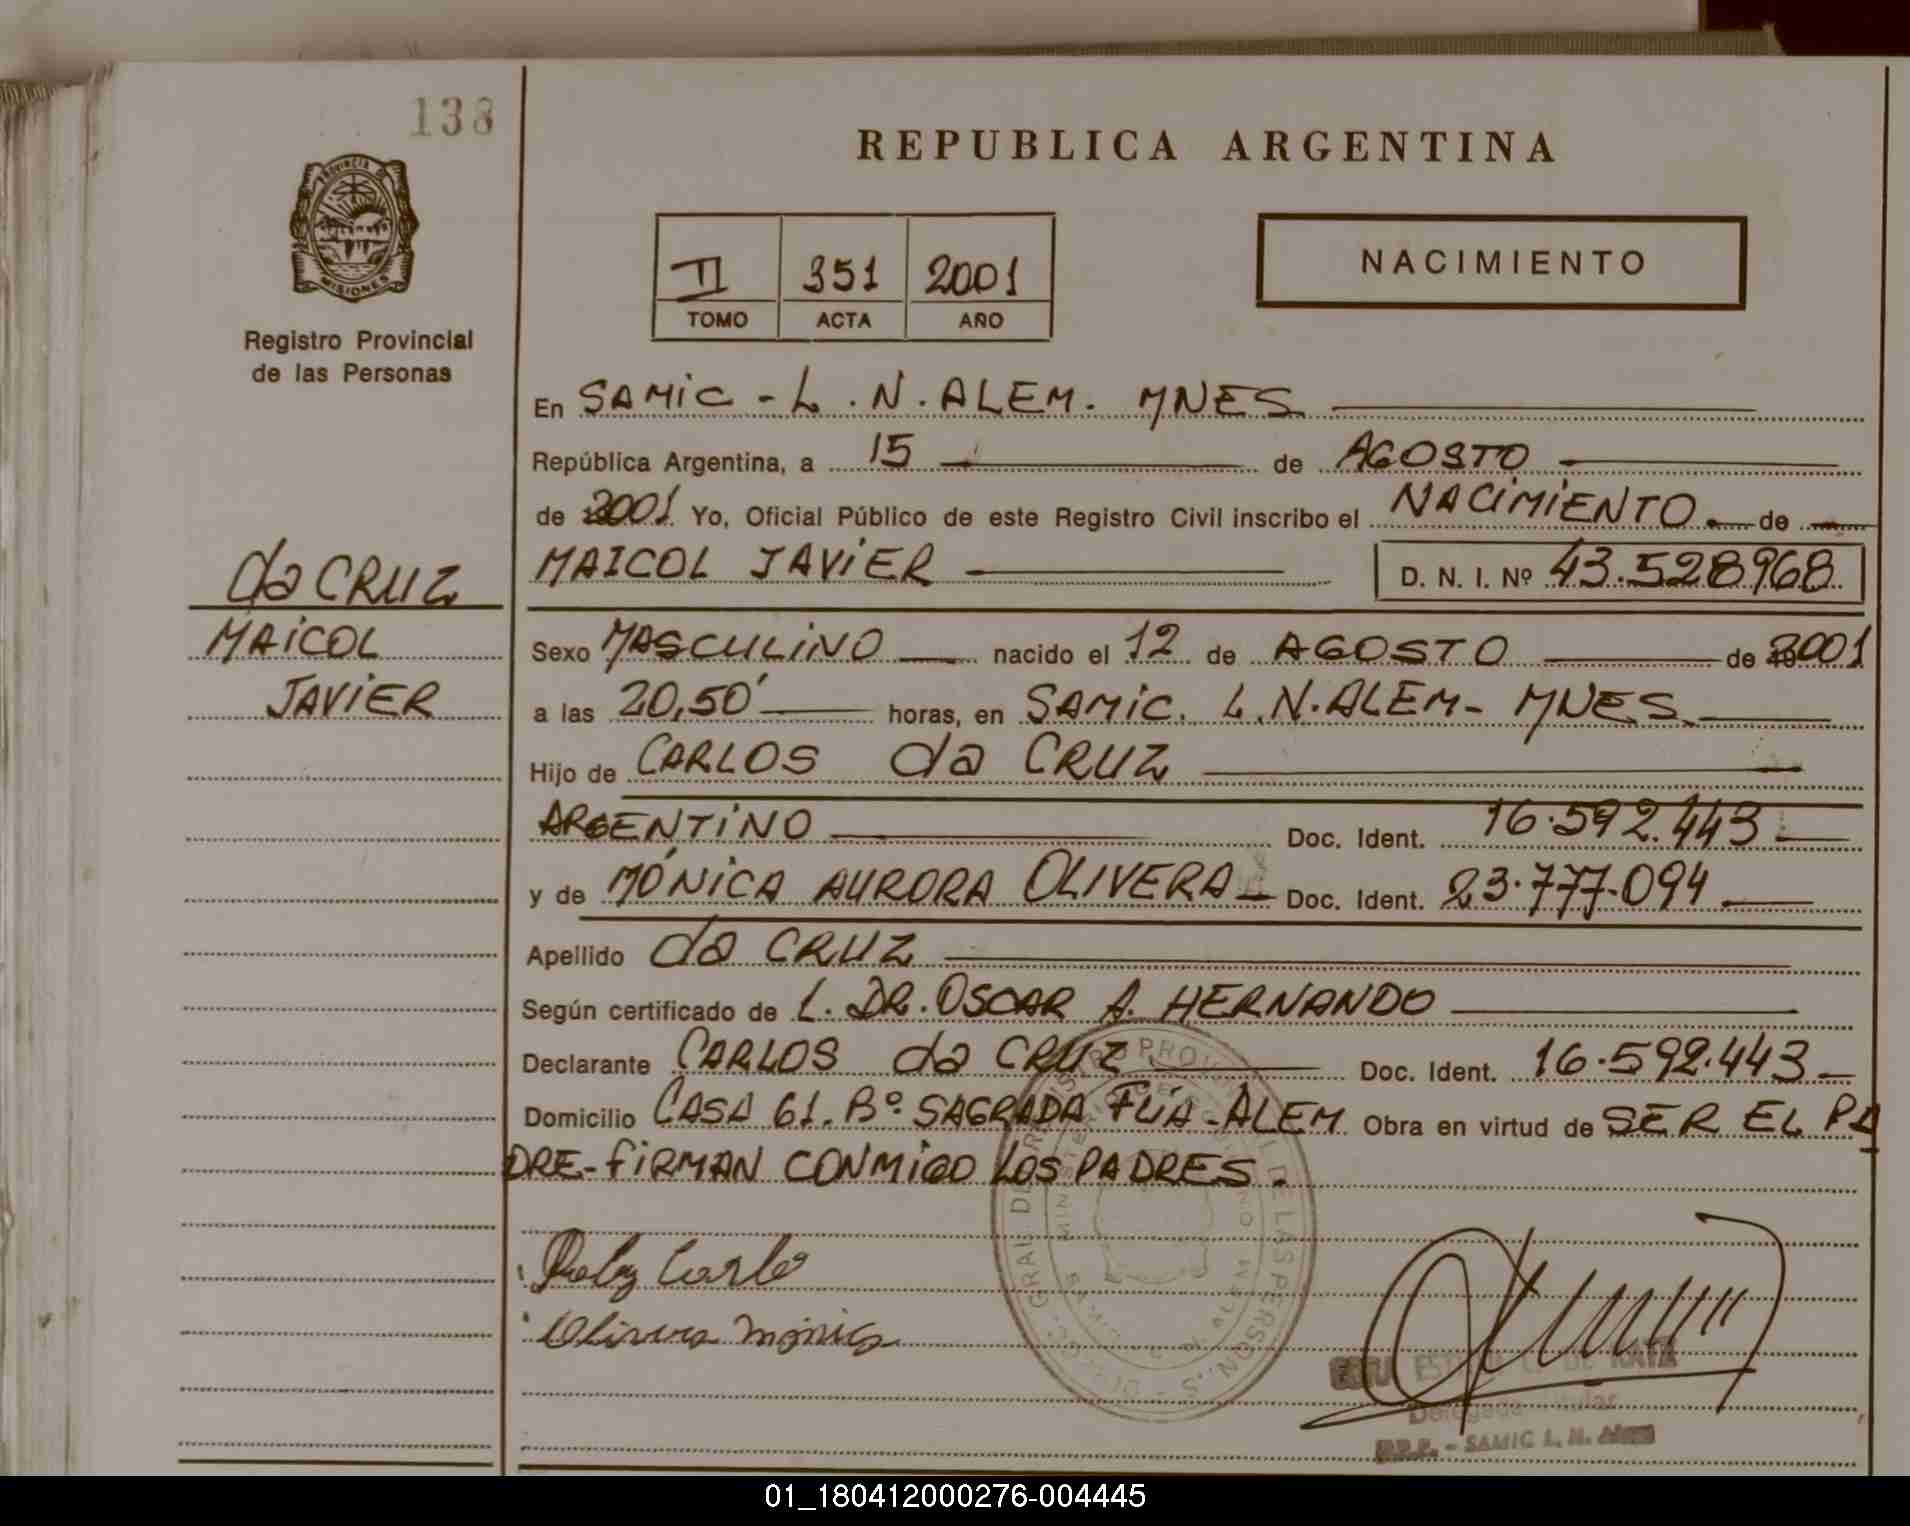 138
PROVINCIA DE
MISIONES
Registro Provincial
de las Personas
da CRUZ
MAICOL
JAVIER
REPUBLICA ARGENTINA
II 351 2001
TOMO ACTA AÑO
NACIMIENTO
En SAMIC - L. N. ALEM. MNES
República Argentina, a 15 de AGOSTO
de 2001 Yo, Oficial Público de este Registro Civil inscribo el NACIMIENTO. de
MAICOL JAVIER D. N. I. Nº 43.528968
Sexo MASCULINO nacido el 12 de AGOSTO de 2001
a las 20,50' horas, en SAMIC. L.N.ALEM- MNES
Hijo de CARLOS da CRUZ
ARGENTINO Doc. Ident. 16.592.443
y de MÓNICA AURORA OLIVERA Doc. Ident. 23.777.094
Apellido da CRUZ
Según certificado de L. DR. OSCAR A. HERNANDO
Declarante CARLOS da CRUZ Doc. Ident. 16.592.443
Domicilio CASA 61. Bº SAGRADA FLIA - ALEM Obra en virtud de SER EL PA
DRE - FIRMAN CONMIGO LOS PADRES.
Olivera Mónica
Delegada Titular
R.P.P. - SAMIC L. N. Alem
01_180412000276-004445